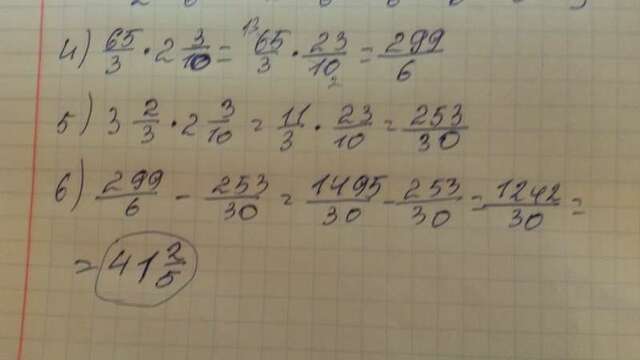 4) 65/3 · 2 3/10 = 65/3 · 23/10 = 299/6
5) 3 2/3 · 2 3/10 = 11/3 · 23/10 = 253/30
6) 299/6 - 253/30 = 1495/30 - 253/30 = 1242/30 =
= 41 2/5